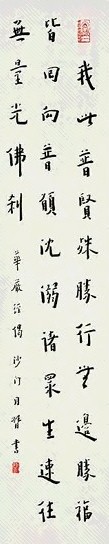 我此普賢殊勝行無邊勝福
皆回向普願沈溺諸眾生速往
無量光佛剎
華嚴經偈 沙門月臂書